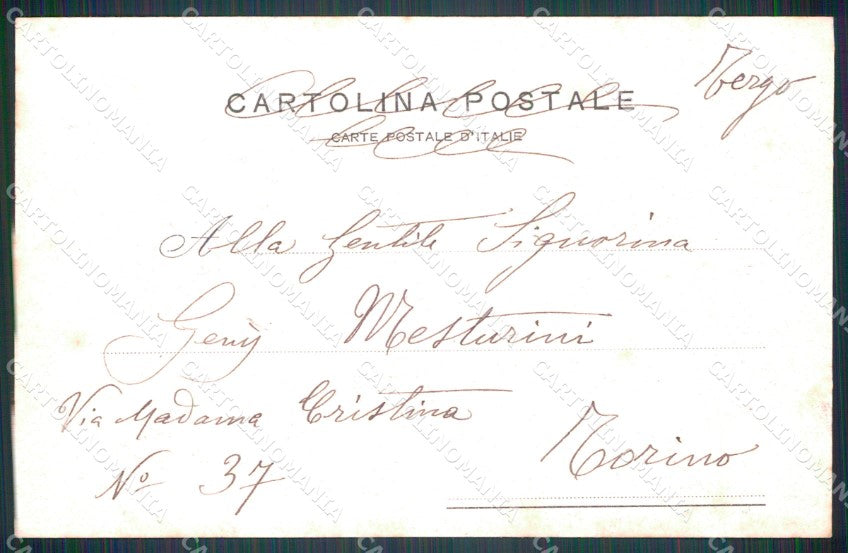 CARTOLINA POSTALE
CARTE POSTALE D'ITALIE
Tergo
Alla Gentile Signorina
Geny Mesturini
Via Madama Cristina
Nº 37
Torino
CARTOLINOMANIA